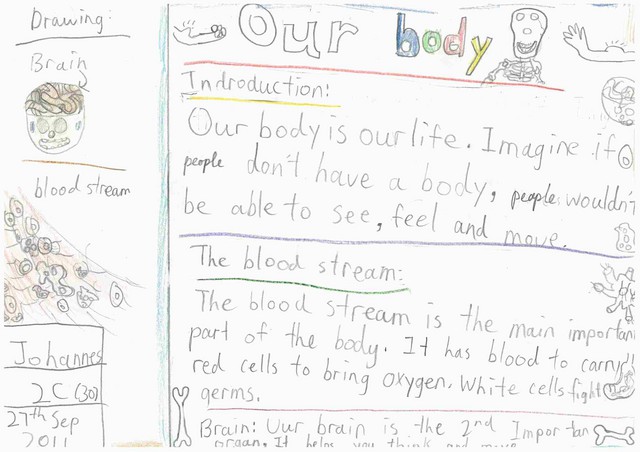 Drawing:
Brain
blood stream
Johannes
2C (30)
27th Sep
2011
Our body
Indroduction:
Our body is our life. Imagine if
people don't have a body, people wouldn't
be able to see, feel and move.
The blood stream:
The blood stream is the main important
part of the body. It has blood to carry
red cells to bring oxygen. White cells fight
germs.
Brain: Our brain is the 2nd Importan
organ. It helps you think and move